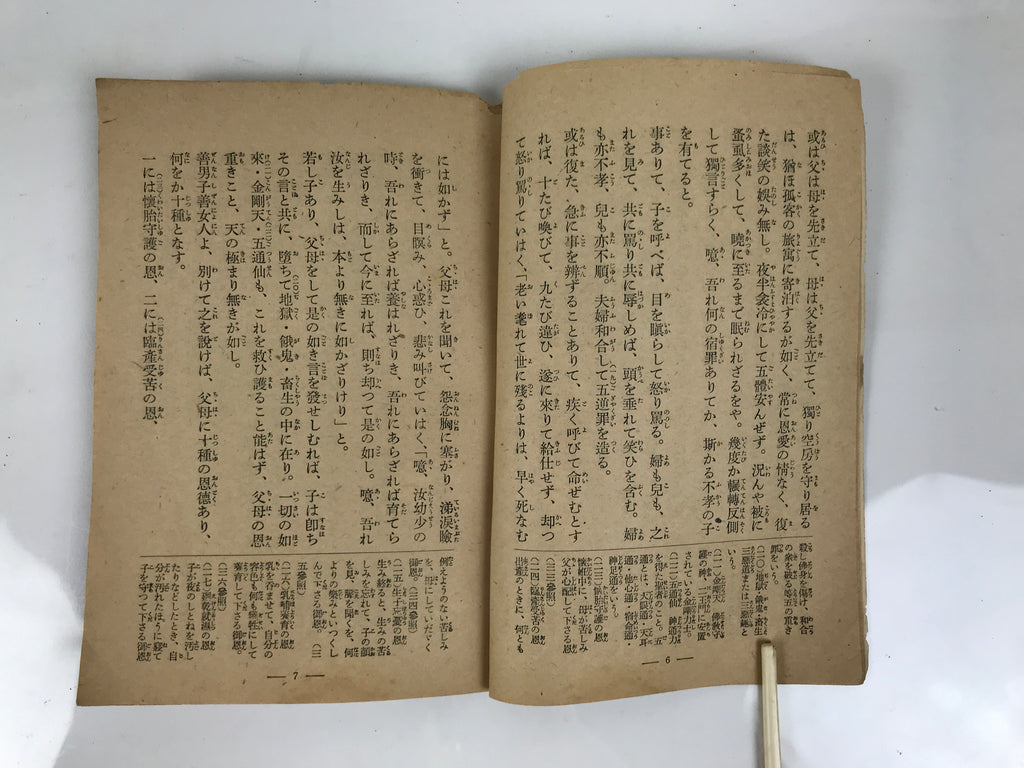 或は父は母を先立て、母は父を先立てて、獨り空房を守り居る
は、猶ほ孤客の旅寓に寄泊するが如く、常に恩愛の情なく、復
た談笑の娯み無し。夜半衾冷にして五體安んぜず。況んや被に
蚤虱多くして、曉に至るまで眠られざるをや。幾度か輾轉反側
して獨言すらく、噫、吾れ何の宿罪ありてか、斯かる不孝の子
を有てると。
事ありて、子を呼べば、目を瞋らして怒り罵る。婦も兒も、之
れを見て、共に罵り共に辱しめば、頭を垂れて笑ひを含む。婦
も亦不孝、兒も亦不順。夫婦和合して五逆罪を造る。
或は復た、急に事を辨ずることありて、疾く呼びて命ぜむとす
れば、十たび喚びて、九たび違ひ、遂に來りて給仕せず、却つ
て怒り罵りていはく、「老い耄れて世に殘るよりは、早く死なむ
殺し、佛身を傷け、和合
の衆を破る等の五の重き
罪をいう。
(二〇)地獄・餓鬼・畜生
三惡道または三惡趣と
いう。
(二一)金剛天 佛教守
護の神、二王門に安置
されている金剛力士。
(二二)五通仙 神通力
を得た聖者のこと。五
通とは、天眼通・天耳
通・他心通・宿命通・
神足通をいう。
(二三)懷胎守護の恩
懷姙中に、母が苦しみ
父が心配して下さる恩
(二四)臨產受苦の恩
出產のときに、何とも
— 6 —
には如かず」と。父母これを聞いて、怨念胸に塞がり、涕涙瞼
を衝きて、目瞑み、心惑ひ、悲み叫びていはく、「噫、汝幼少の
時、吾れにあらざれば養はれざりき、吾れにあらざれば育てら
れざりき、而して今に至れば、則ち却つて是の如し。噫、吾れ
汝を生みしは、本より無きに如かざりけり」と。
若し子あり、父母をして是の如き言を發せしむれば、子は卽ち
その言と共に、墮ちて地獄・餓鬼・畜生の中に在り。一切の如
來・金剛天・五通仙も、これを救ひ護ること能はず、父母の恩
重きこと、天の極まり無きが如し。
善男子善女人よ、別けて之を說けば、父母に十種の恩德あり、
何をか十種となす。
一には懷胎守護の恩、二には臨產受苦の恩、
例えようのない苦しみ
を、母にしていただく
御恩。(三四參照)
(二五)生子忘憂の恩
生み終ると、生みの苦
しみを忘れて、子の顏
を見、聲を聞くを、何
よりの樂みといつくし
んで下さる御恩。(三
五參照)
(二六)乳哺養育の恩
乳を呑ませて、自分の
容色も何も犧牲にして
養育して下さる御恩。
(三六參照)
(二七)廻乾就濕の恩
子が夜のしとねを汚し
たりなどしたとき、自
分が汚れたほうに寢て
子を守って下さる御恩
— 7 —